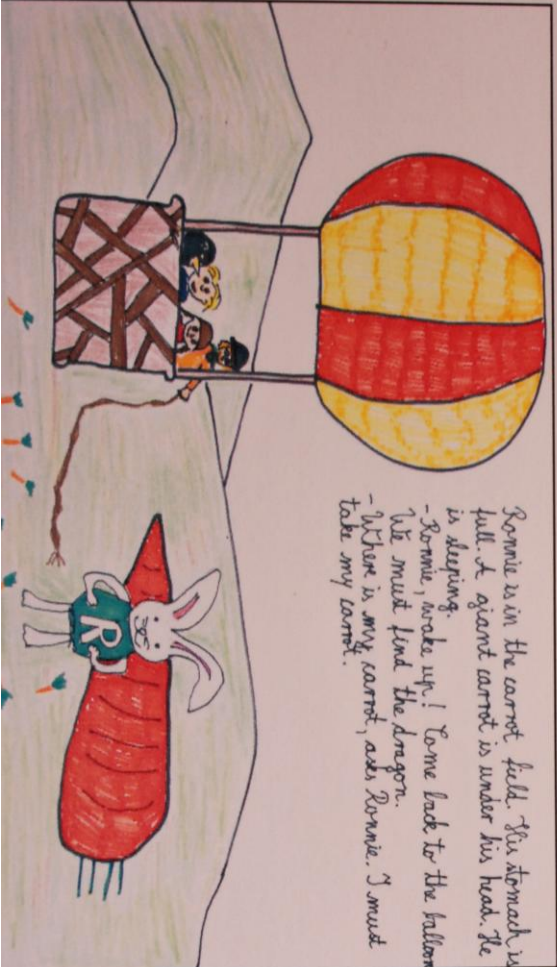 Ronnie is in the carrot field. His stomach is
full. A giant carrot is under his head. He
is sleeping.
- Ronnie, wake up! Come back to the balloon
We must find the dragon.
- Where is my carrot, asks Ronnie. I must
take my carrot.
R